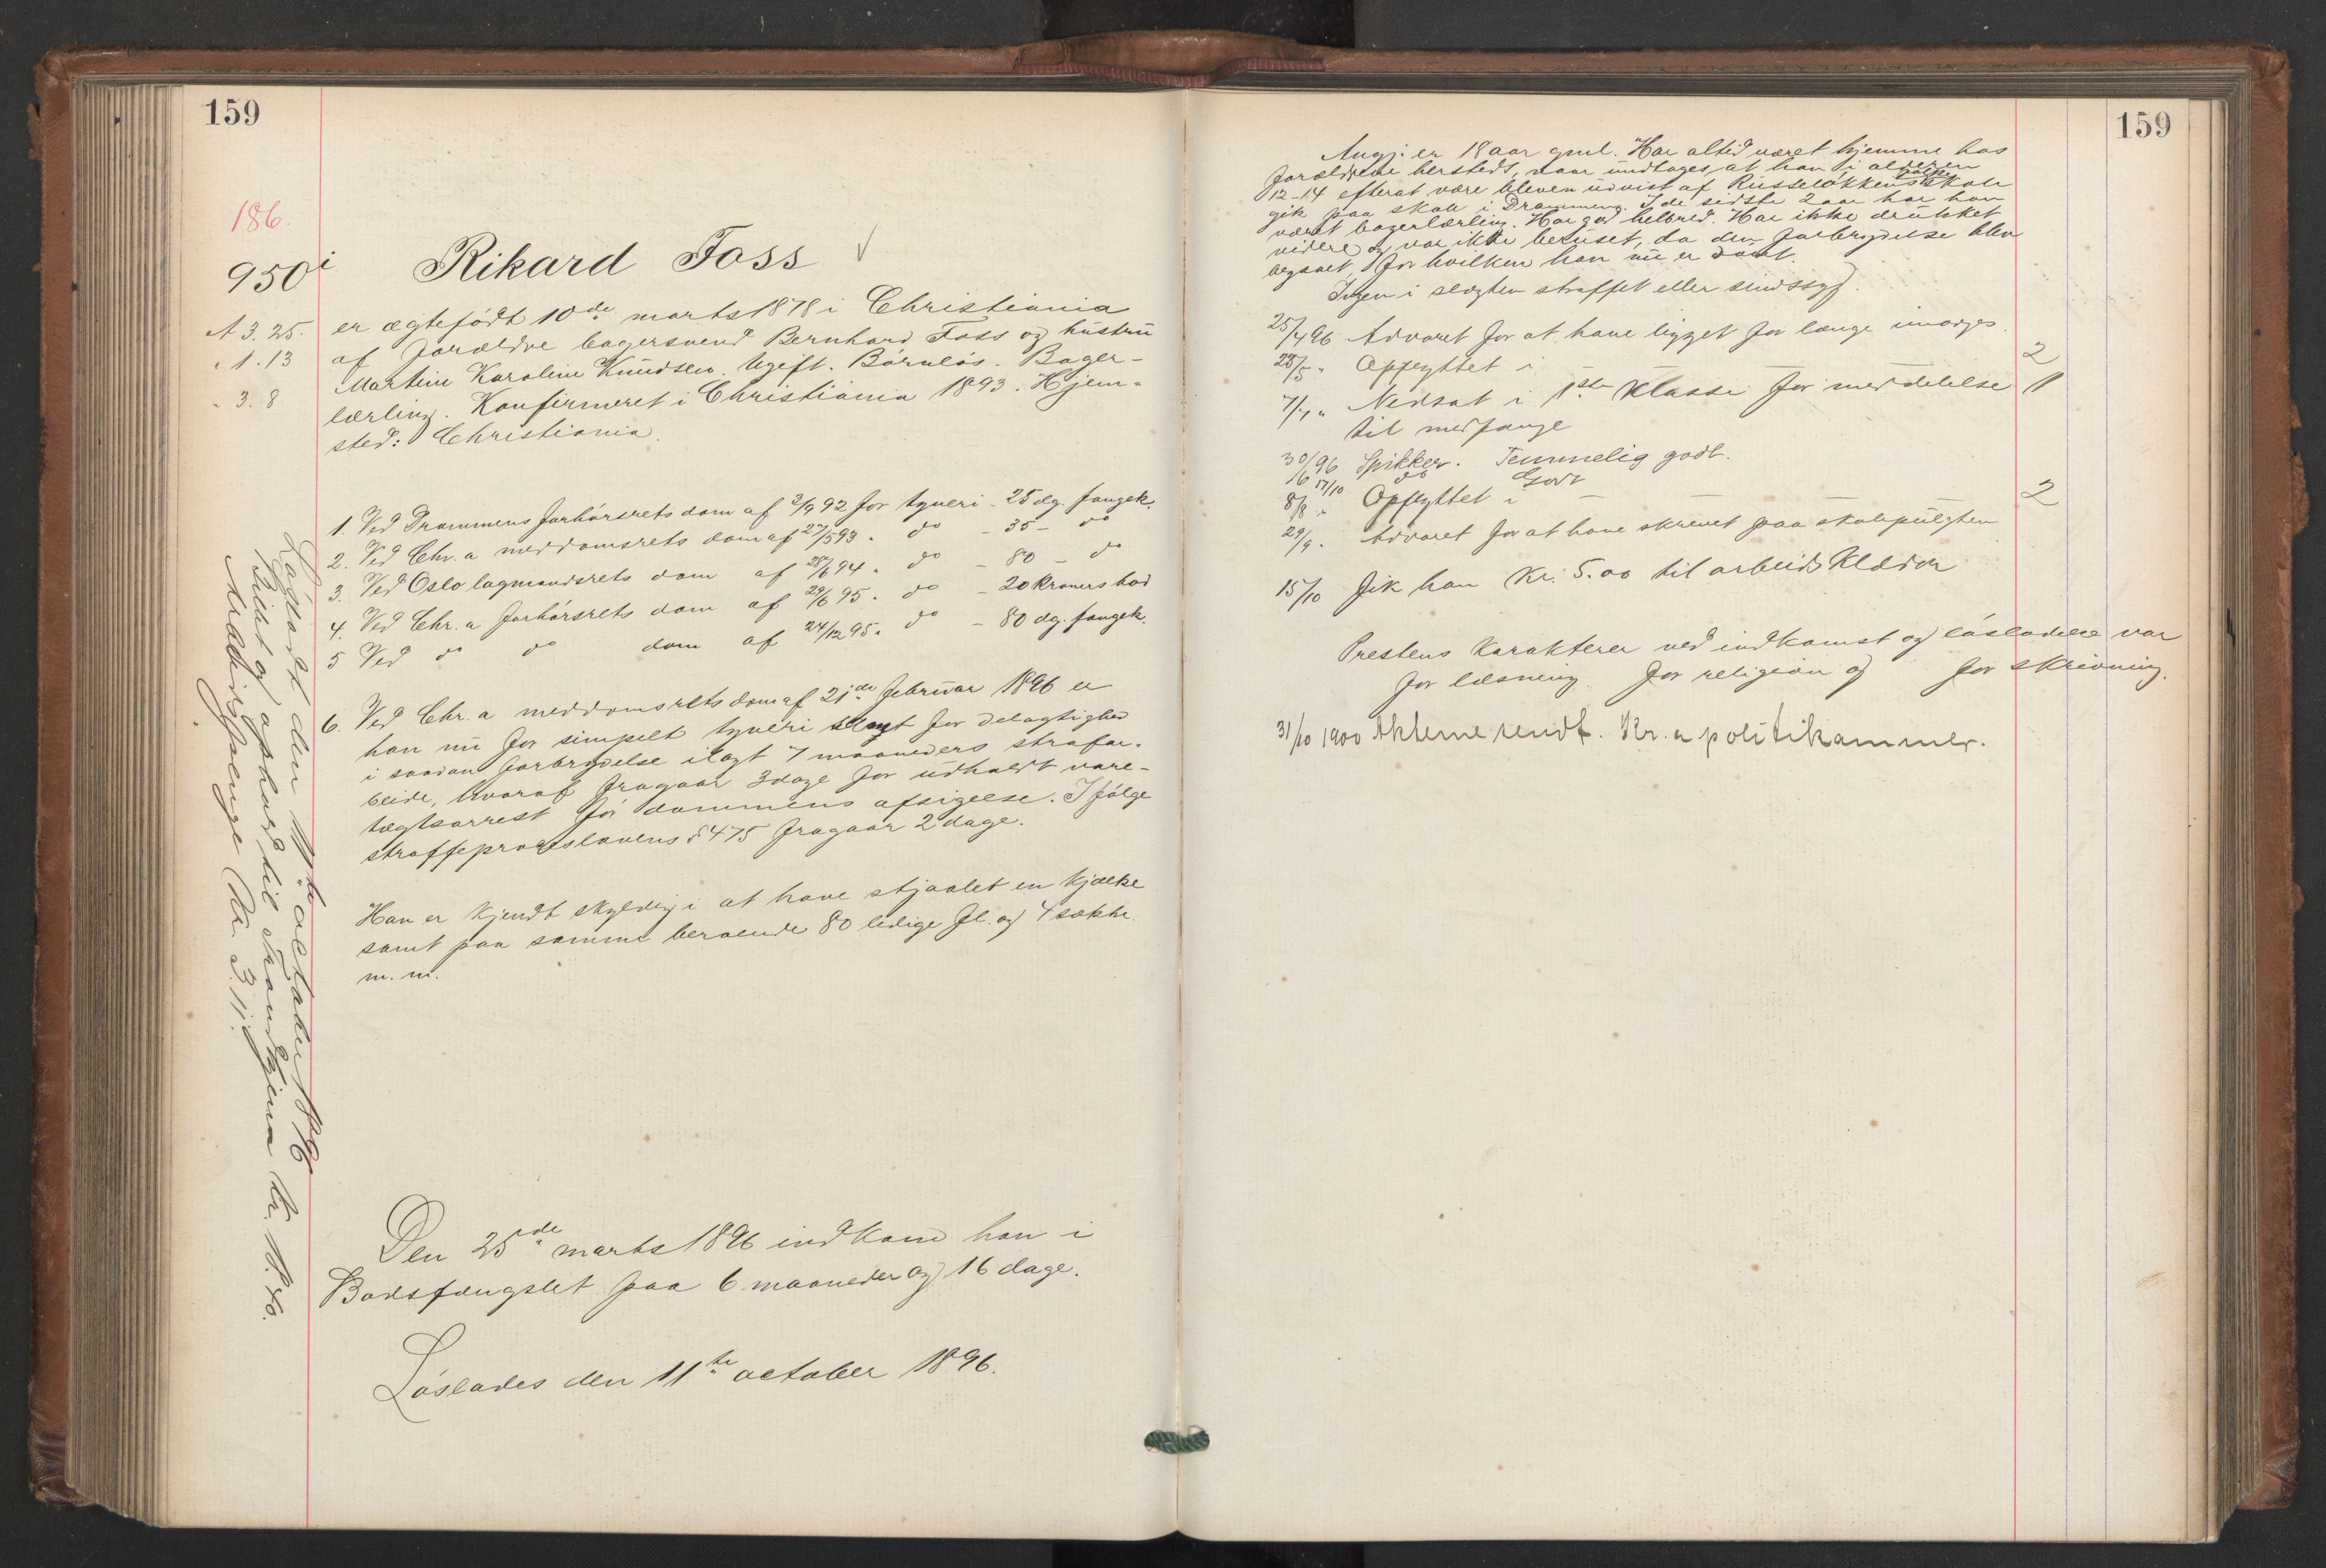 159
186.
950 i Rikard Foss
A 3. 25.
" 1. 13
" 3. 8
er ægtefödt 10de marts 1878 i Christiania
af forældre bagersvend Bernhard Foss og hustru
Martine Karoline Knudsen. Ugift. Börnlös. Bager-
lærling. Konfirmeret i Christiania 1893. Hjem-
sted: Christiania.
1. Ved Drammens forhörsrets dom af 2/9 92 for tyveri - 25 dg. fængsk.
2. Ved Chr.a meddomsrets dom af 27/5 93 " do - 35 - do
3. Ved Oslo lagmandsrets dom af 28/6 94 " do - 80 - do
4. Ved Chr.a forhörsrets dom af 29/6 95 " do - 20 kroners bod
5 Ved do do dom af 24/12 95 " do - 80 dg. fængsk.
6. Ved Chr.a meddomsrets dom af 21de februar 1896 er
han nu for simpelt tyveri samt for delagtighed
i saadan forbrydelse ilagt 7 maaneders strafar-
beide, hvoraf fragaar 3 dage for udholdt vare-
tægtsarrest för dommens afsigelse. I fölge
straffeproceslovens § 475 fragaar 2 dage.
Han er kjendt skyldig i at have stjaalet en kjælke
samt paa samme beroende 80 ledige fl. og 4 sække
m. m.
Den 25de marts 1896 indkom han i
Bodsfængslet paa 6 maaneder og 16 dage.
Löslades den 11te october 1896.
Lösladt den 11te october 1896
Billet og ophold til Trondhjem kr. 18.80.
Arbeidspenge kr. 3.11.
159
Angj. er 18 aar gml. Har altid været hjemme hos
forældrene hersteds, naar undtages, at han i alderen
12-14 efterat være bleven udvist af Russelökkens folkeskole
gik paa skole i Drammen. I de sidste 2 aar har han
været bagerlærling. Har god helbred. Har ikke drukket
videre og var ikke beruset, da den forbrydelse blev
begaaet, for hvilken han nu er dömt.
Ingen i slægten straffet eller sindssyg.
25/4 96 Advaret for at have ligget for længe imorges.
28/5 " Opflyttet i — — 2
7/7 " Nedsat i 1ste klasse for meddelelse 1
til medfange
30/6 96 Spikker. Temmelig godt.
17/10 do Godt
8/8 " Opflyttet i — — — 2
29/9 " Advaret for at have skrevet paa skolepulten
15/10 fik han kr. 5.00 til arbeidsklæder
Prestens karakterer ved indkomst og lösladelse var
for læsning for religion og for skrivning.
31/10 1900 Akterne sendt. Kr.a politikammer.